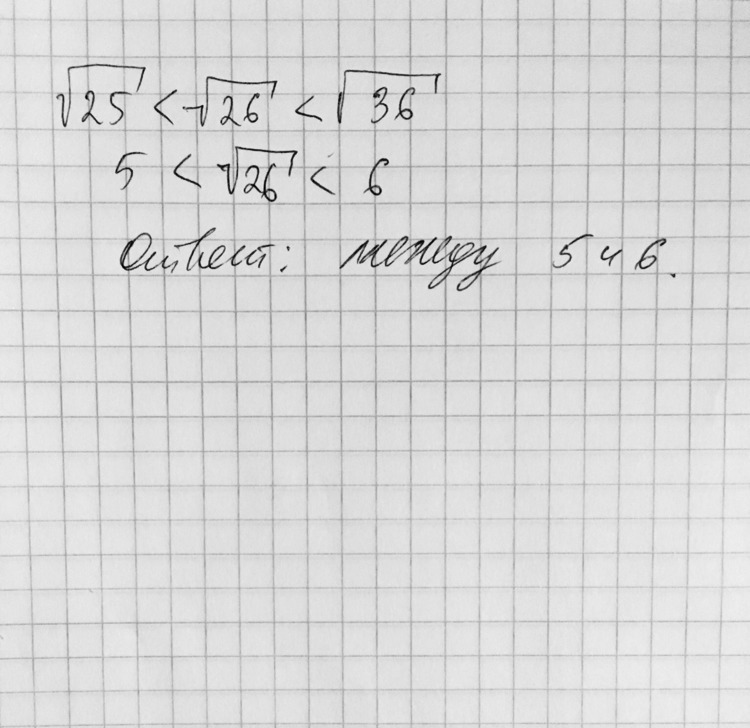 √25 < √26 < √36
5 < √26 < 6
Ответ: между 5 и 6.